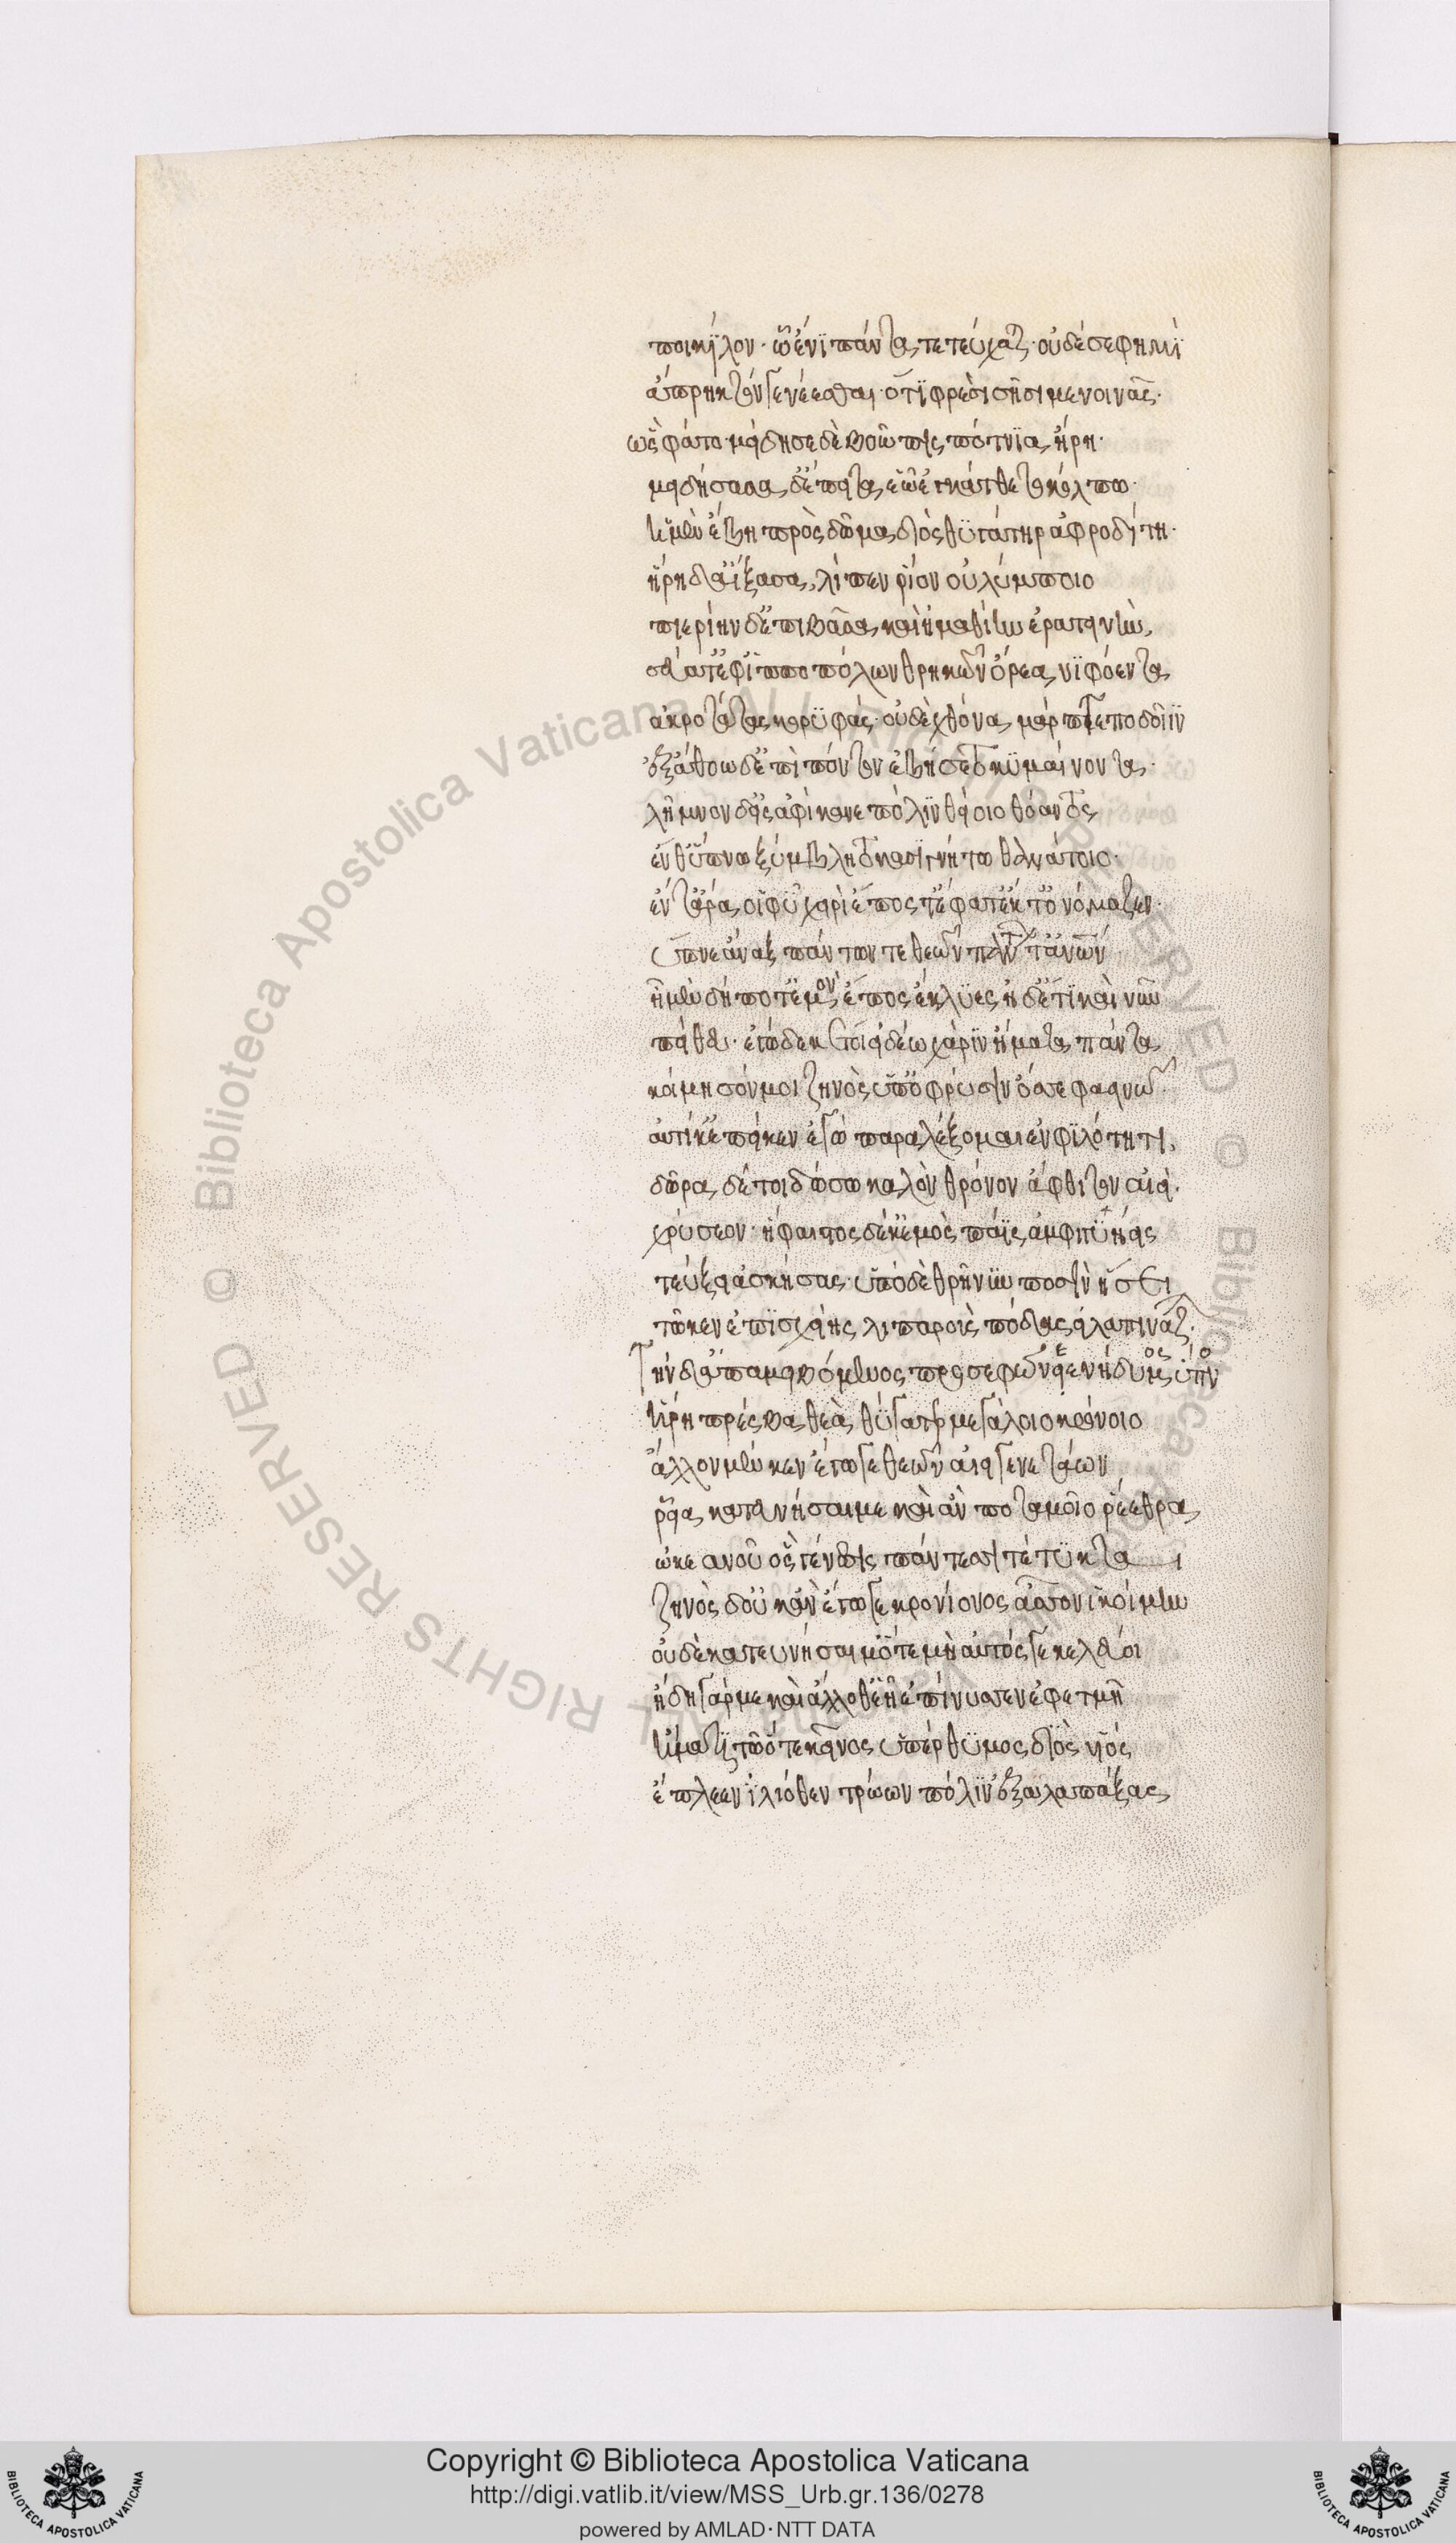 ποικίλον· ᾧ ἔνι πάντα τετεύχαται· οὐδέ σε φημὶ
ἄπρηκτόν γε νέεσθαι· ὅτι φρεσὶ σῇσι μενοινᾷς·
ὣς φάτο· μείδησε δὲ βοῶπις πότνια ἥρη·
μειδήσασα δ' ἔπειτα ἑῷ ἐγκάτθετο κόλπω·
ἡ μὲν ἔβη πρὸς δῶμα διὸς θυγάτηρ ἀφροδίτη·
ἥρη δ' ἀΐξασα λίπεν ῥίον οὐλύμποιο
πιερίην δ' ἐπιβᾶσα καὶ ἠμαθίην ἐρατεινὴν,
σεύατ' ἐφ' ἱπποπόλων θρηκῶν ὄρεα νιφόεντα
ἀκροτάτας κορυφάς· οὐδὲ χθόνα μάρπτε ποδοῖιν
ἐξ ἄθοω δ' ἐπὶ πόντον ἐβήσετο κυμαίνοντα·
λῆμνον δ' εἰσαφίκανε πόλιν θείοιο θόαντος
ἔνθ' ὕπνω ξύμβλητο κασιγνήτω θανάτοιο·
ἔν τ' ἄρα οἱ φῦ χειρὶ ἔπος τ' ἔφατ' ἔκ τ' ὀνόμαζεν·
ὕπνε ἄναξ πάντων τε θεῶν πάντων τ' ἀνθρώπων
ἠμὲν δή ποτ' ἐμὸν ἔπος ἔκλυες ἠδ' ἔτι καὶ νῦν
πείθευ· ἐγὼ δέ κέ τοι εἰδέω χάριν ἤματα πάντα
κοίμησόν μοι ζηνὸς ὑπ' ὀφρύσιν ὄσσε φαεινώ·
αὐτίκ' ἐπεί κεν ἐγὼ παραλέξομαι ἐν φιλότητι,
δῶρα δέ τοι δώσω καλὸν θρόνον ἄφθιτον αἰεί·
χρύσεον· ἥφαιστος δέ κ' ἐμὸς πάϊς ἀμφιγυήεις
τεύξει ἀσκήσας· ὑπὸ δὲ θρῆνυν ποσὶν ἥσει
τῷ κεν ἐπισχοίης λιπαροὺς πόδας εἰλαπινάζων·
Τὴν δ' ἀπαμειβόμενος προσεφώνεε νήδυμος ὕπνος
ἥρη πρέσβα θεὰ θύγατερ μεγάλοιο κρόνοιο
ἄλλον μέν κεν ἔγωγε θεῶν αἰειγενετάων
ῥεῖα κατευνήσαιμι καὶ ἂν ποταμοῖο ῥέεθρα
ὠκεανοῦ ὅς γένεσις πάντεσσι τέτυκται
ζηνὸς δ' οὐκ ἂν ἔγωγε κρονίονος ἆσσον ἱκοίμην
οὐδὲ κατευνήσαιμ' ὅτε μὴ αὐτός γε κελεύοι
ἤδη γάρ με καὶ ἄλλοθ' ἑῇ ἐπίνυσσεν ἐφετμῇ
ἤματι τῷ ὅτε κεῖνος ὑπέρθυμος διὸς υἱός
ἔπλεεν ἰλιόθεν τρώων πόλιν ἐξαλαπάξας
Copyright © Biblioteca Apostolica Vaticana
http://digi.vatlib.it/view/MSS_Urb.gr.136/0278
powered by AMLAD·NTT DATA